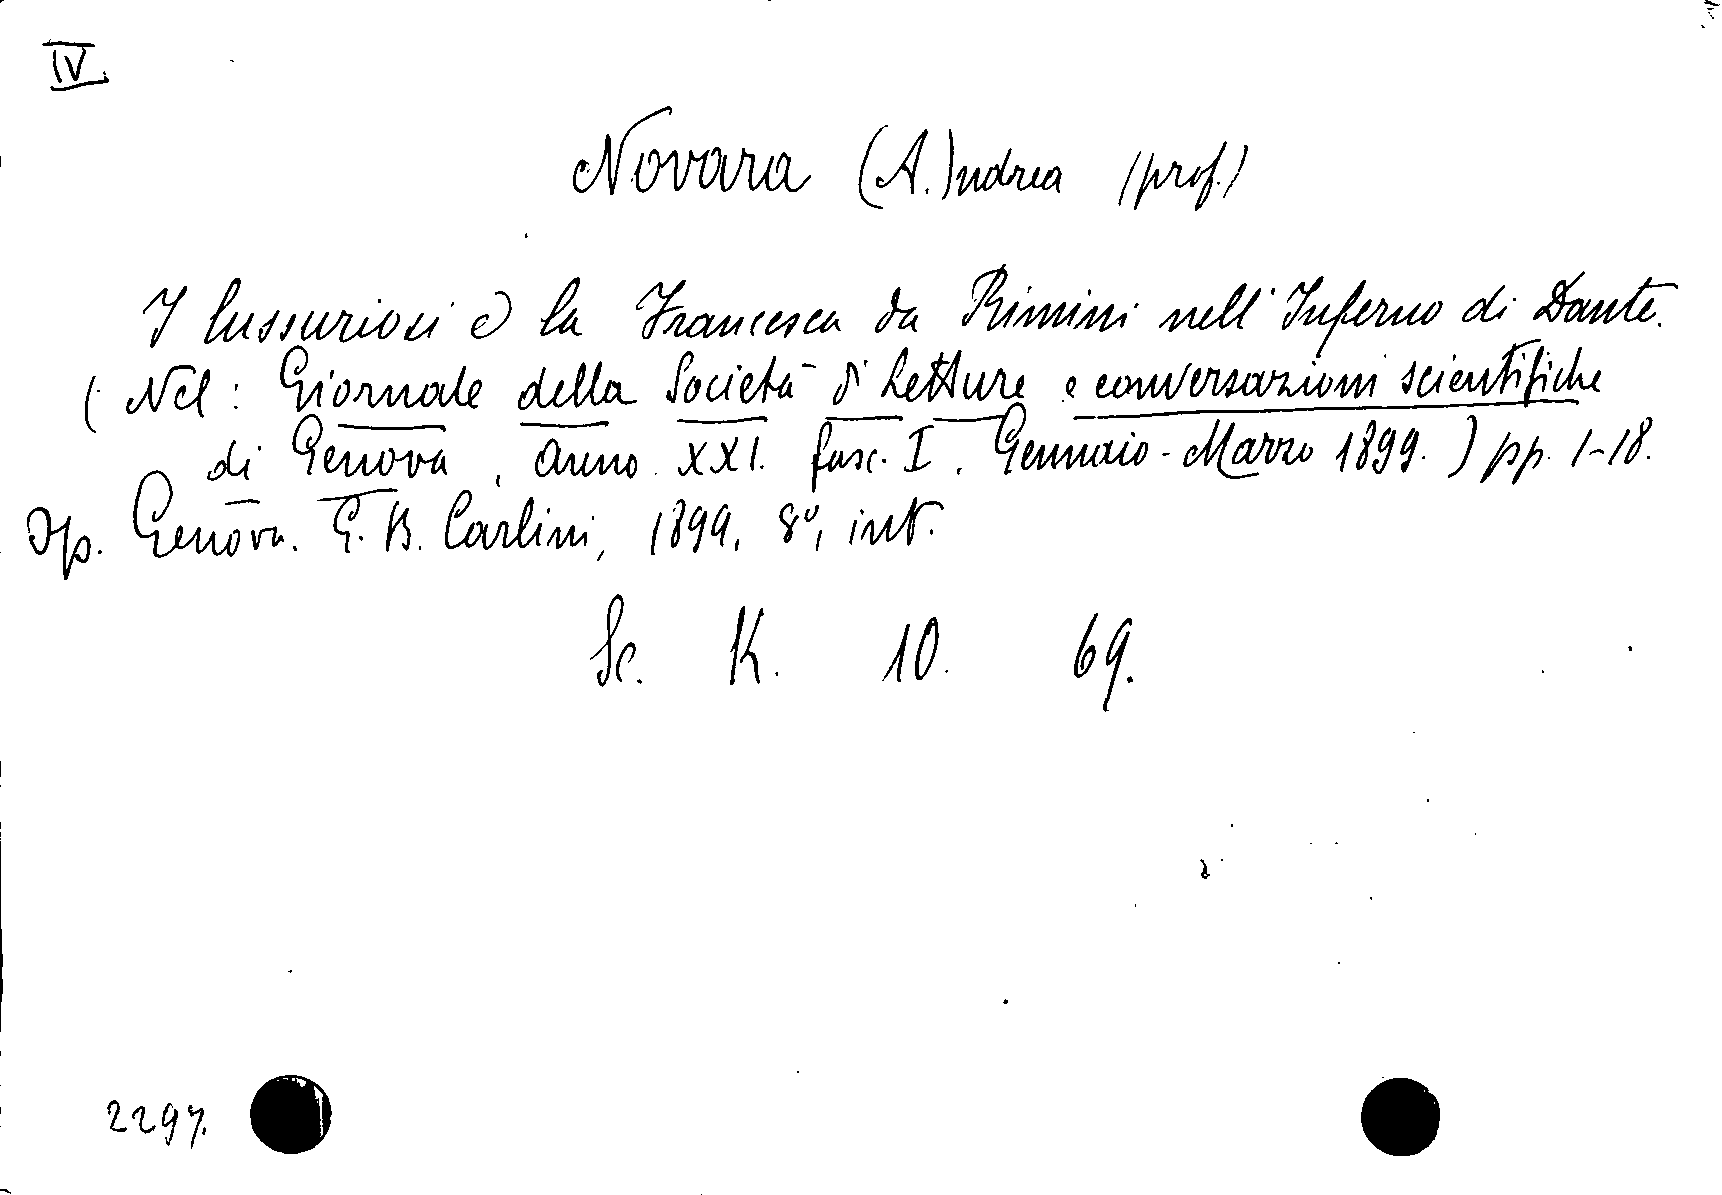 IV.
Novara (A.)ndrea (prof.)
I lussuriosi e la Francesca da Rimini nell'Inferno di Dante.
(Nel: Giornale della Società di Letture e conversazioni scientifiche
di Genova, anno XXI. fasc. I. Gennaio-Marzo 1899.) pp. 1-18.
Op. Genova. G. B. Carlini, 1899. 8°, int.
Sc. K. 10. 69.
2297.